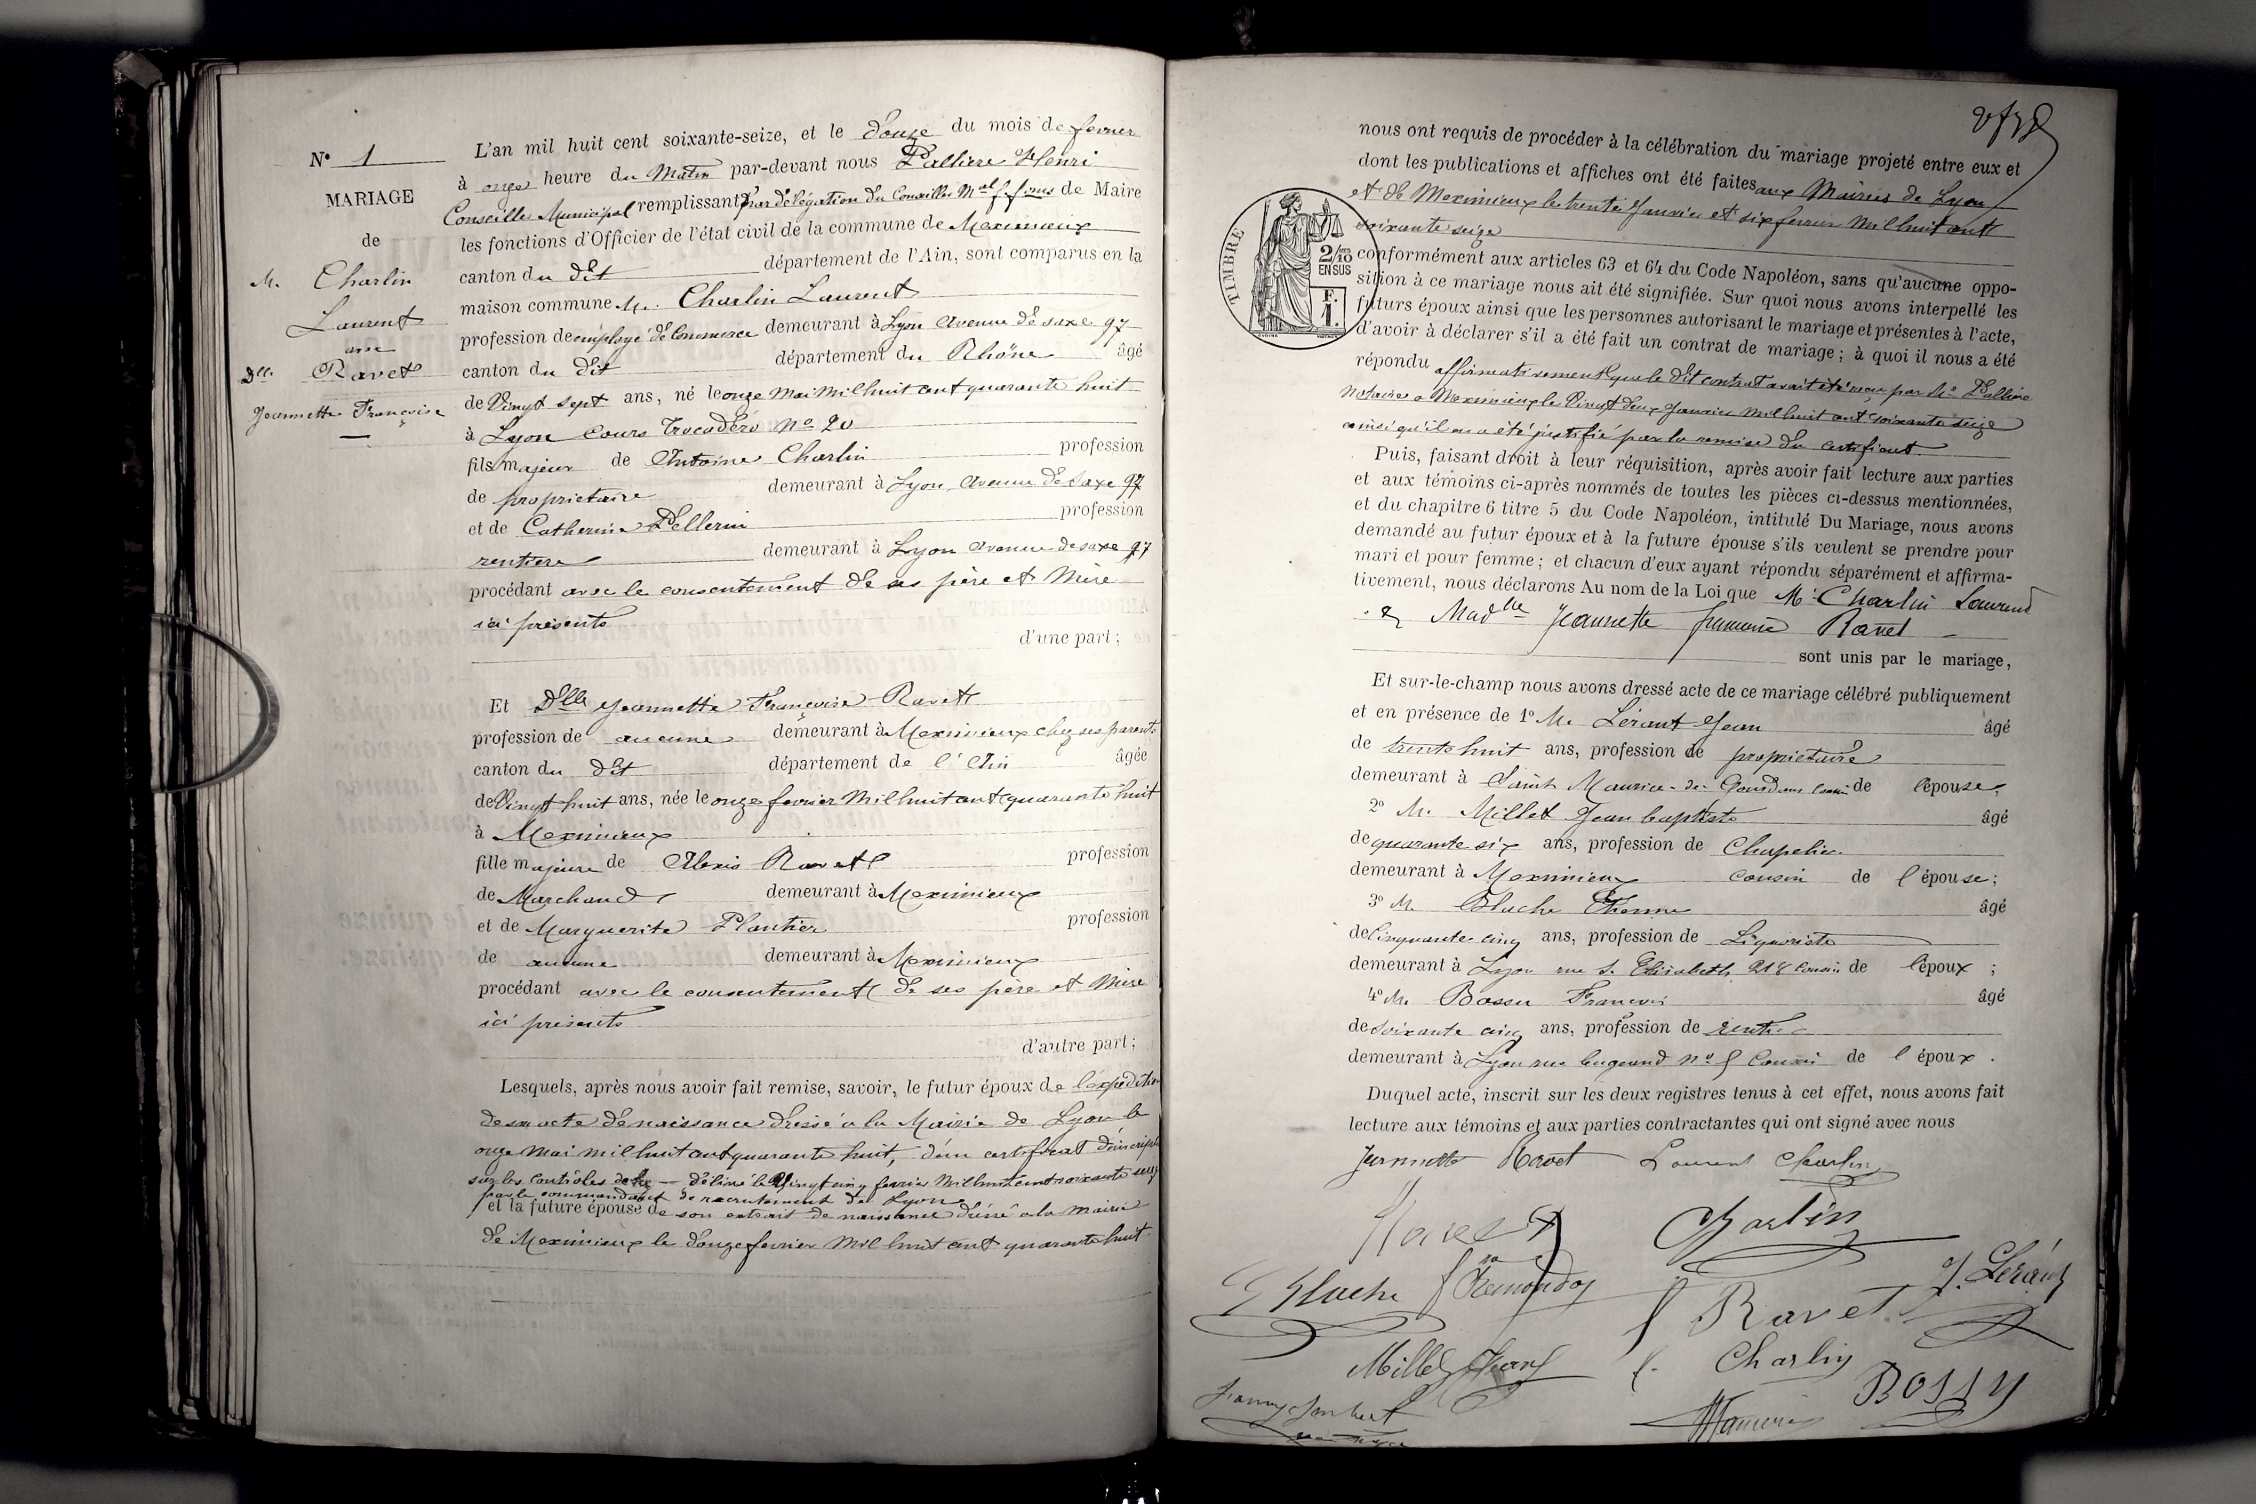 N° 1
MARIAGE
de
M. Charlin
Laurent
avec
Dlle Ravet
Jeannette Françoise
L'an mil huit cent soixante-seize, et le douze du mois de fevrier
à onze heure du Matin par-devant nous Palliere Henri
Conseiller Municipal remplissant par délégation du Conseiller Mal ffions de Maire
les fonctions d'Officier de l'état civil de la commune de Meximieux
canton du dit département de l'Ain, sont comparus en la
maison commune M. Charlin Laurent
profession de employé de Commerce demeurant à Lyon Avenue de saxe 97
canton du dit département du Rhône âgé
de Vingt sept ans, né le onze Mai Mil huit cent quarante huit
à Lyon Cours Trocadéro No 20
fils majeur de Antoine Charlin profession
de propriétaire demeurant à Lyon Avenue de Saxe 97
et de Catherine Pellerin profession
rentiere demeurant à Lyon Avenue de saxe 97
procédant avec le consentement de ses père et Mère
ici présents
d'une part ;
Et Dlle Jeannette Françoise Ravet
profession de aucune demeurant à Meximieux chez ses parents
canton du dit département de l'Ain âgée
de Vingt huit ans, née le onze fevrier Mil huit cent quarante huit
à Meximieux
fille majeure de Alexis Ravet profession
de Marchand demeurant à Meximieux
et de Marguerite Plantier profession
de aucune demeurant à Meximieux
procédant avec le consentement de ses père et Mère
ici présents
d'autre part ;
Lesquels, après nous avoir fait remise, savoir, le futur époux de l'expédition
de son acte de naissance dressé à la Mairie de Lyon le
onze Mai mil huit cent quarante huit, d'un certificat d'inscription
sur les contrôles de délivré le Vingt cinq fevrier Mil huit cent soixante seize
par le commandant de recrutement de Lyon
et la future épouse de son extrait de naissance dressé à la Mairie
de Meximieux le douze fevrier Mil huit cent quarante huit.
nous ont requis de procéder à la célébration du mariage projeté entre eux et
dont les publications et affiches ont été faites aux Mairies de Lyon
et de Meximieux le trente Janvier et six fevrier Mil huit cent
soixante seize
TIMBRE
2/10 EN SUS
F. 1.
conformément aux articles 63 et 64 du Code Napoléon, sans qu'aucune oppo-
sition à ce mariage nous ait été signifiée. Sur quoi nous avons interpellé les
futurs époux ainsi que les personnes autorisant le mariage et présentes à l'acte,
d'avoir à déclarer s'il a été fait un contrat de mariage ; à quoi il nous a été
répondu affirmativement que le dit contrat avait été reçu par Me Pallière
Notaire à Meximieux le Vingt deux Janvier mil huit cent soixante seize
ainsi qu'il en a été justifié par la remise du certificat.
Puis, faisant droit à leur réquisition, après avoir fait lecture aux parties
et aux témoins ci-après nommés de toutes les pièces ci-dessus mentionnées,
et du chapitre 6 titre 5 du Code Napoléon, intitulé Du Mariage, nous avons
demandé au futur époux et à la future épouse s'ils veulent se prendre pour
mari et pour femme ; et chacun d'eux ayant répondu séparément et affirma-
tivement, nous déclarons Au nom de la Loi que Mr Charlin Laurent
& Madlle Jeannette francoise Ravet
sont unis par le mariage,
Et sur-le-champ nous avons dressé acte de ce mariage célébré publiquement
et en présence de 1° M. Lérant Jean âgé
de trente huit ans, profession de propriétaire
demeurant à Saint Maurice de Gourdans cousin de l'épouse ;
2° M. Millet Jean baptiste âgé
de quarante six ans, profession de Chapelier
demeurant à Meximieux cousin de l'épouse ;
3° M. Bluche Etienne âgé
de Cinquante cinq ans, profession de Liquoriste
demeurant à Lyon rue Ste Elisabeth 218 Cousin de l'époux ;
4° M. Bossu Francois âgé
de Soixante cinq ans, profession de rentier
demeurant à Lyon rue bugeaud No 5 Cousin de l'époux.
Duquel acte, inscrit sur les deux registres tenus à cet effet, nous avons fait
lecture aux témoins et aux parties contractantes qui ont signé avec nous
Jeannette Ravet Laurent Charlin
Ravet Charlin
E Bluche J. Lérant
f Ravet
Millet Jean f. Charlin
BOSSU